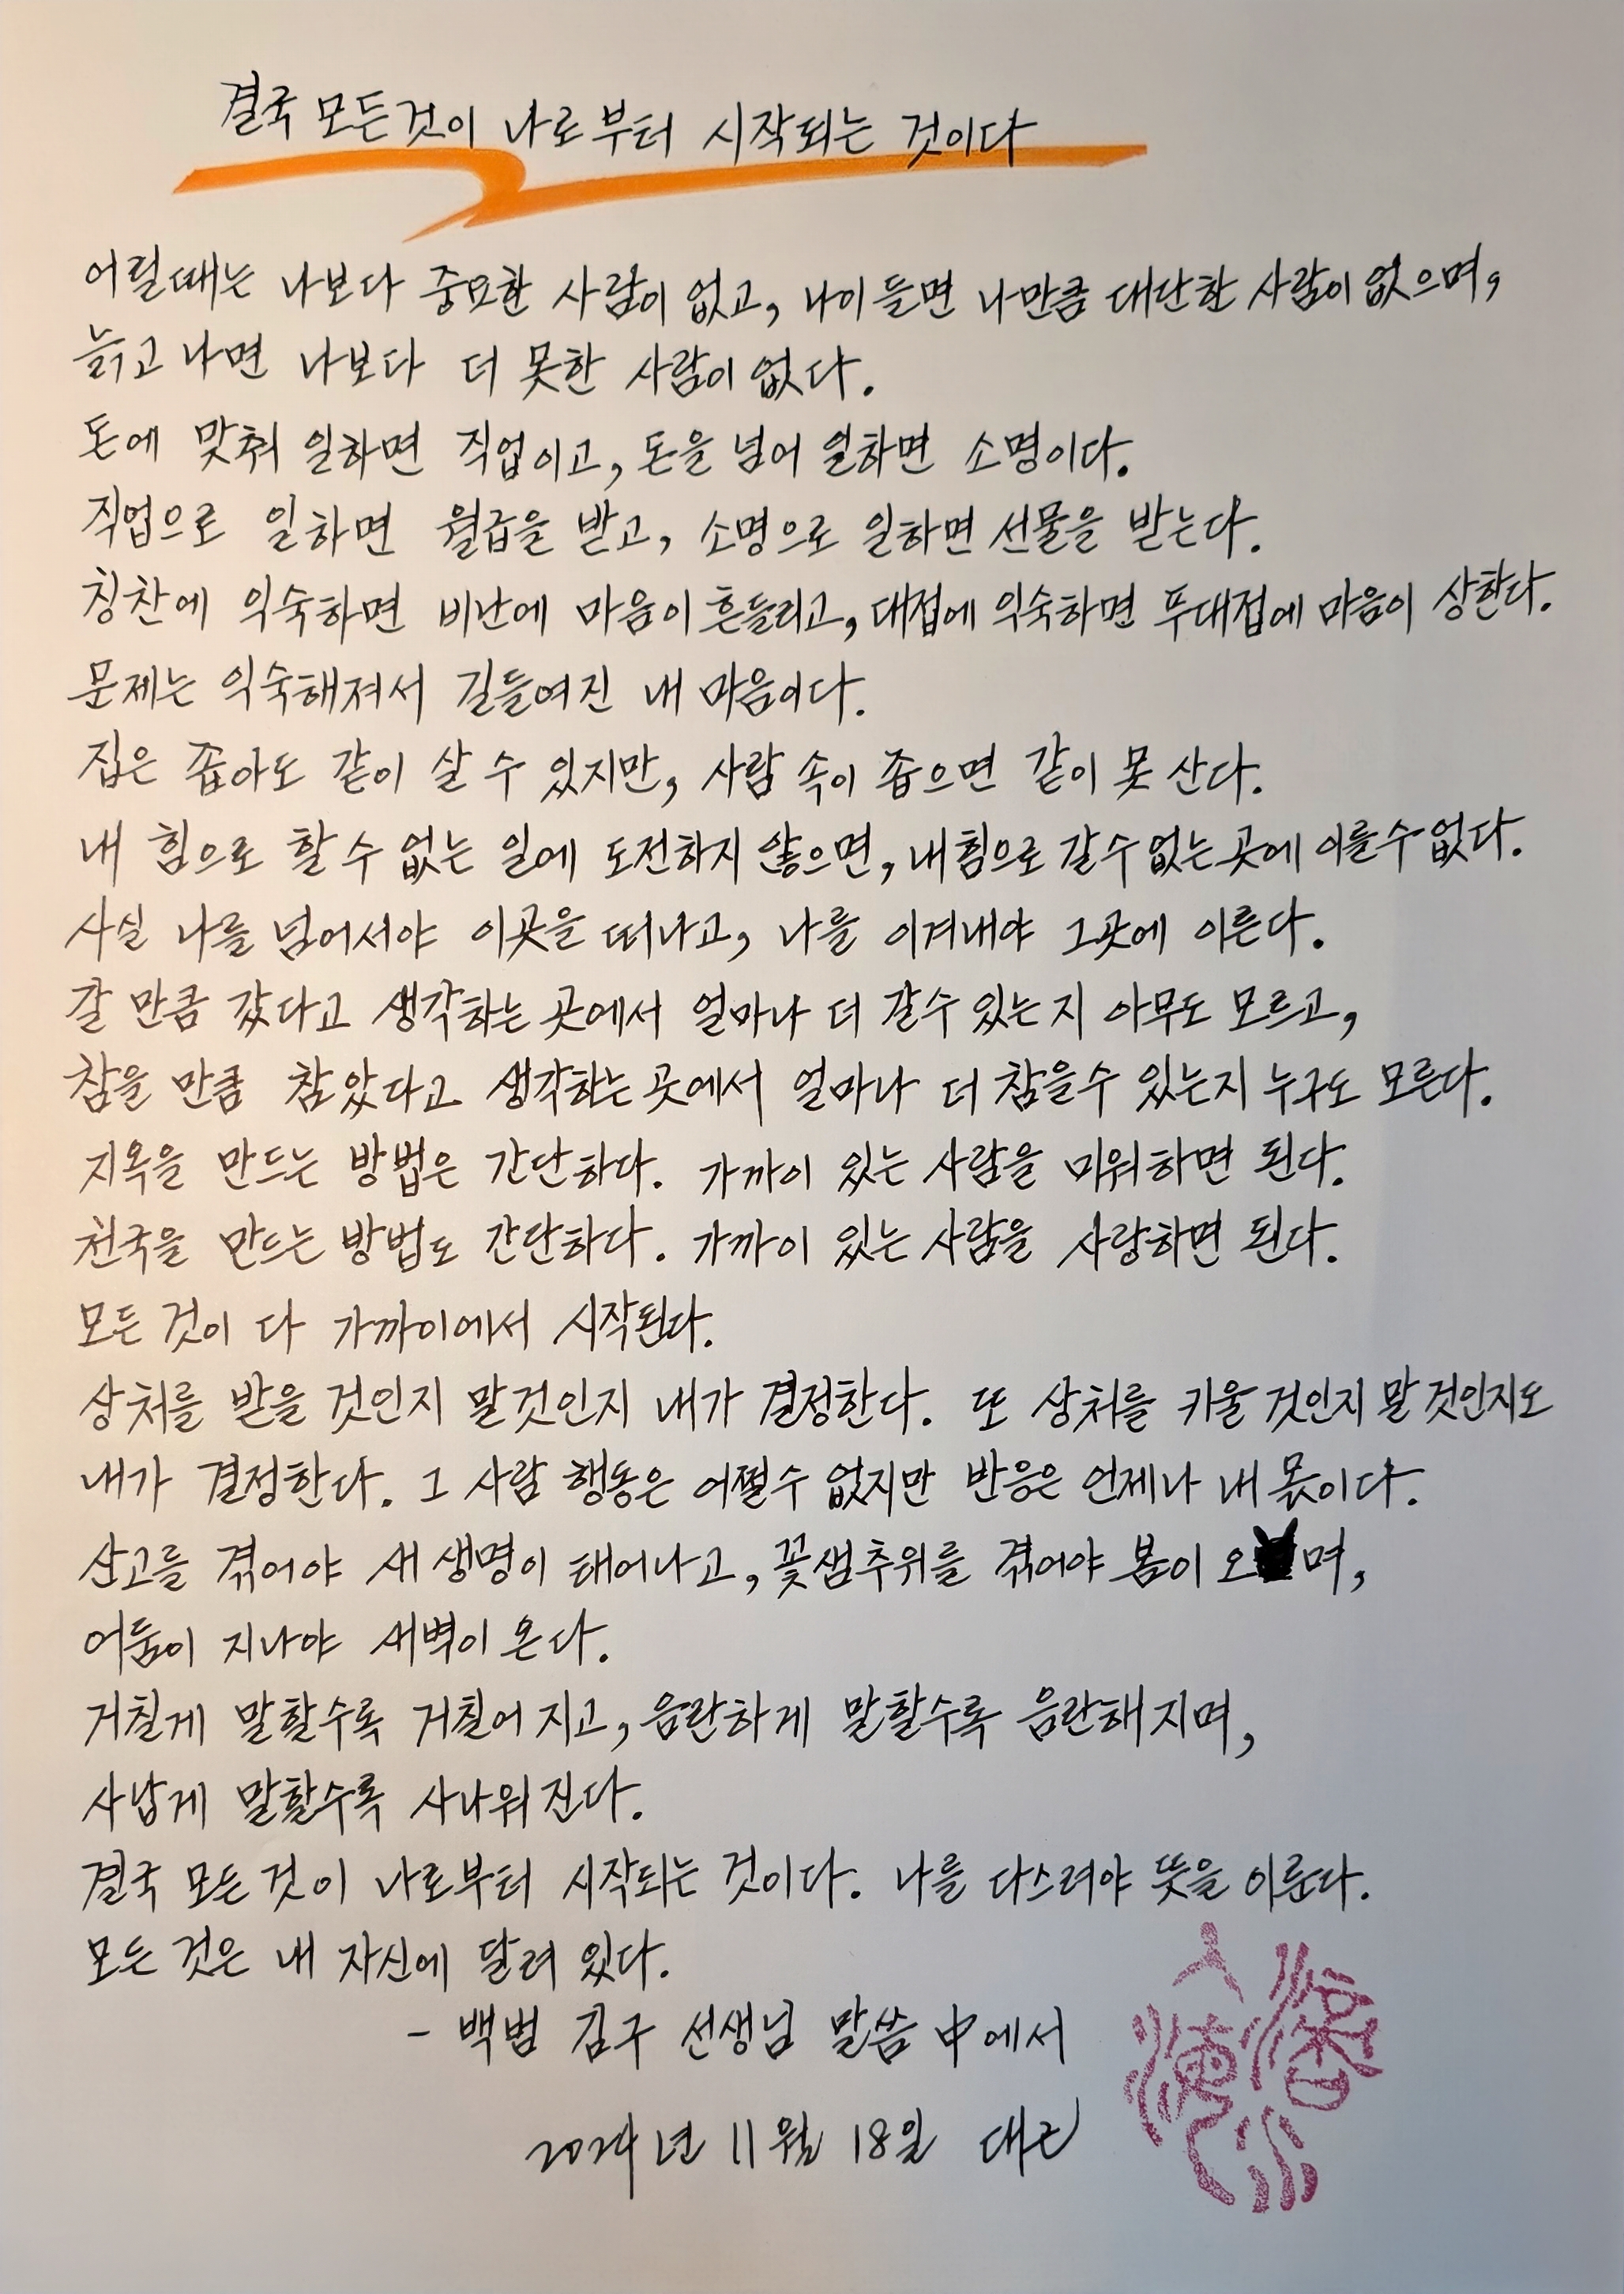 결국 모든것이 나로부터 시작되는 것이다
어릴때는 나보다 중요한 사람이 없고, 나이 들면 나만큼 대단한 사람이 없으며,
늙고 나면 나보다 더 못한 사람이 없다.
돈에 맞춰 일하면 직업이고, 돈을 넘어 일하면 소명이다.
직업으로 일하면 월급을 받고, 소명으로 일하면 선물을 받는다.
칭찬에 익숙하면 비난에 마음이 흔들리고, 대접에 익숙하면 푸대접에 마음이 상한다.
문제는 익숙해져서 길들여진 내 마음이다.
집은 좁아도 같이 살 수 있지만, 사람 속이 좁으면 같이 못 산다.
내 힘으로 할 수 없는 일에 도전하지 않으면, 내 힘으로 갈 수 없는 곳에 이를 수 없다.
사실 나를 넘어서야 이곳을 떠나고, 나를 이겨내야 그곳에 이른다.
갈 만큼 갔다고 생각하는 곳에서 얼마나 더 갈수 있는지 아무도 모르고,
참을 만큼 참았다고 생각하는 곳에서 얼마나 더 참을수 있는지 누구도 모른다.
지옥을 만드는 방법은 간단하다. 가까이 있는 사람을 미워하면 된다.
천국을 만드는 방법도 간단하다. 가까이 있는 사람을 사랑하면 된다.
모든 것이 다 가까이에서 시작된다.
상처를 받을 것인지 말것인지 내가 결정한다. 또 상처를 키울 것인지 말 것인지도
내가 결정한다. 그 사람 행동은 어쩔수 없지만 반응은 언제나 내 몫이다.
산고를 겪어야 새 생명이 태어나고, 꽃샘추위를 겪어야 봄이 오며,
어둠이 지나야 새벽이 온다.
거칠게 말할수록 거칠어 지고, 음란하게 말할수록 음란해 지며,
사납게 말할수록 사나워 진다.
결국 모든 것이 나로부터 시작되는 것이다. 나를 다스려야 뜻을 이룬다.
모든 것은 내 자신에 달려 있다.
- 백범 김구 선생님 말씀 中에서
2024년 11월 18일 대근